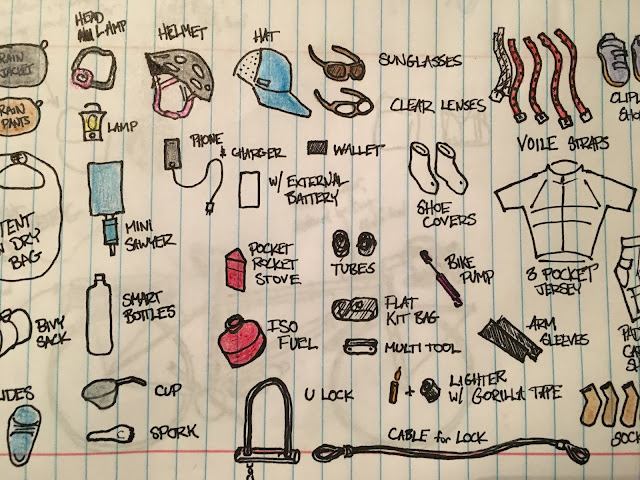 RAIN
JACKET
HEAD
LAMP
HELMET
HAT
SUNGLASSES
RAIN
PANTS
LAMP
CLEAR LENSES
VOILE STRAPS
PHONE
& CHARGER
W/ EXTERNAL
BATTERY
WALLET
SHOE
COVERS
TENT
DRY
BAG
MINI
SAWYER
POCKET
ROCKET
STOVE
TUBES
BIKE
PUMP
3 POCKET
JERSEY
BIVY
SACK
SMART
BOTTLES
ISO
FUEL
FLAT
KIT BAG
MULTI TOOL
ARM
SLEEVES
CUP
U LOCK
LIGHTER
W/ GORILLA TAPE
SPORK
CABLE for LOCK